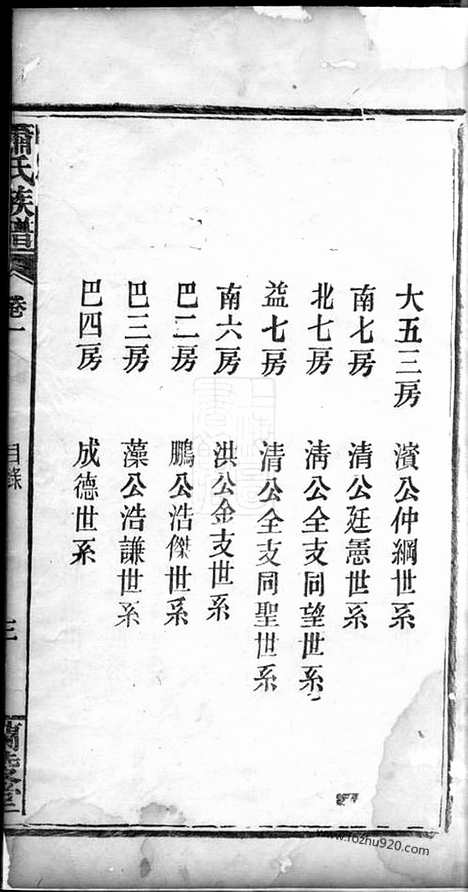 大五三房　濱公仲綱世系
南七房　清公廷憲世系
北七房　清公全支同望世系
益七房　清公全支同聖世系
南六房　洪公金支世系
巴二房　鵬公浩傑世系
巴三房　藻公浩謙世系
巴四房　成德世系
蕭氏族譜
卷一
目錄
三
蘭陵堂
www.fozhu920.com